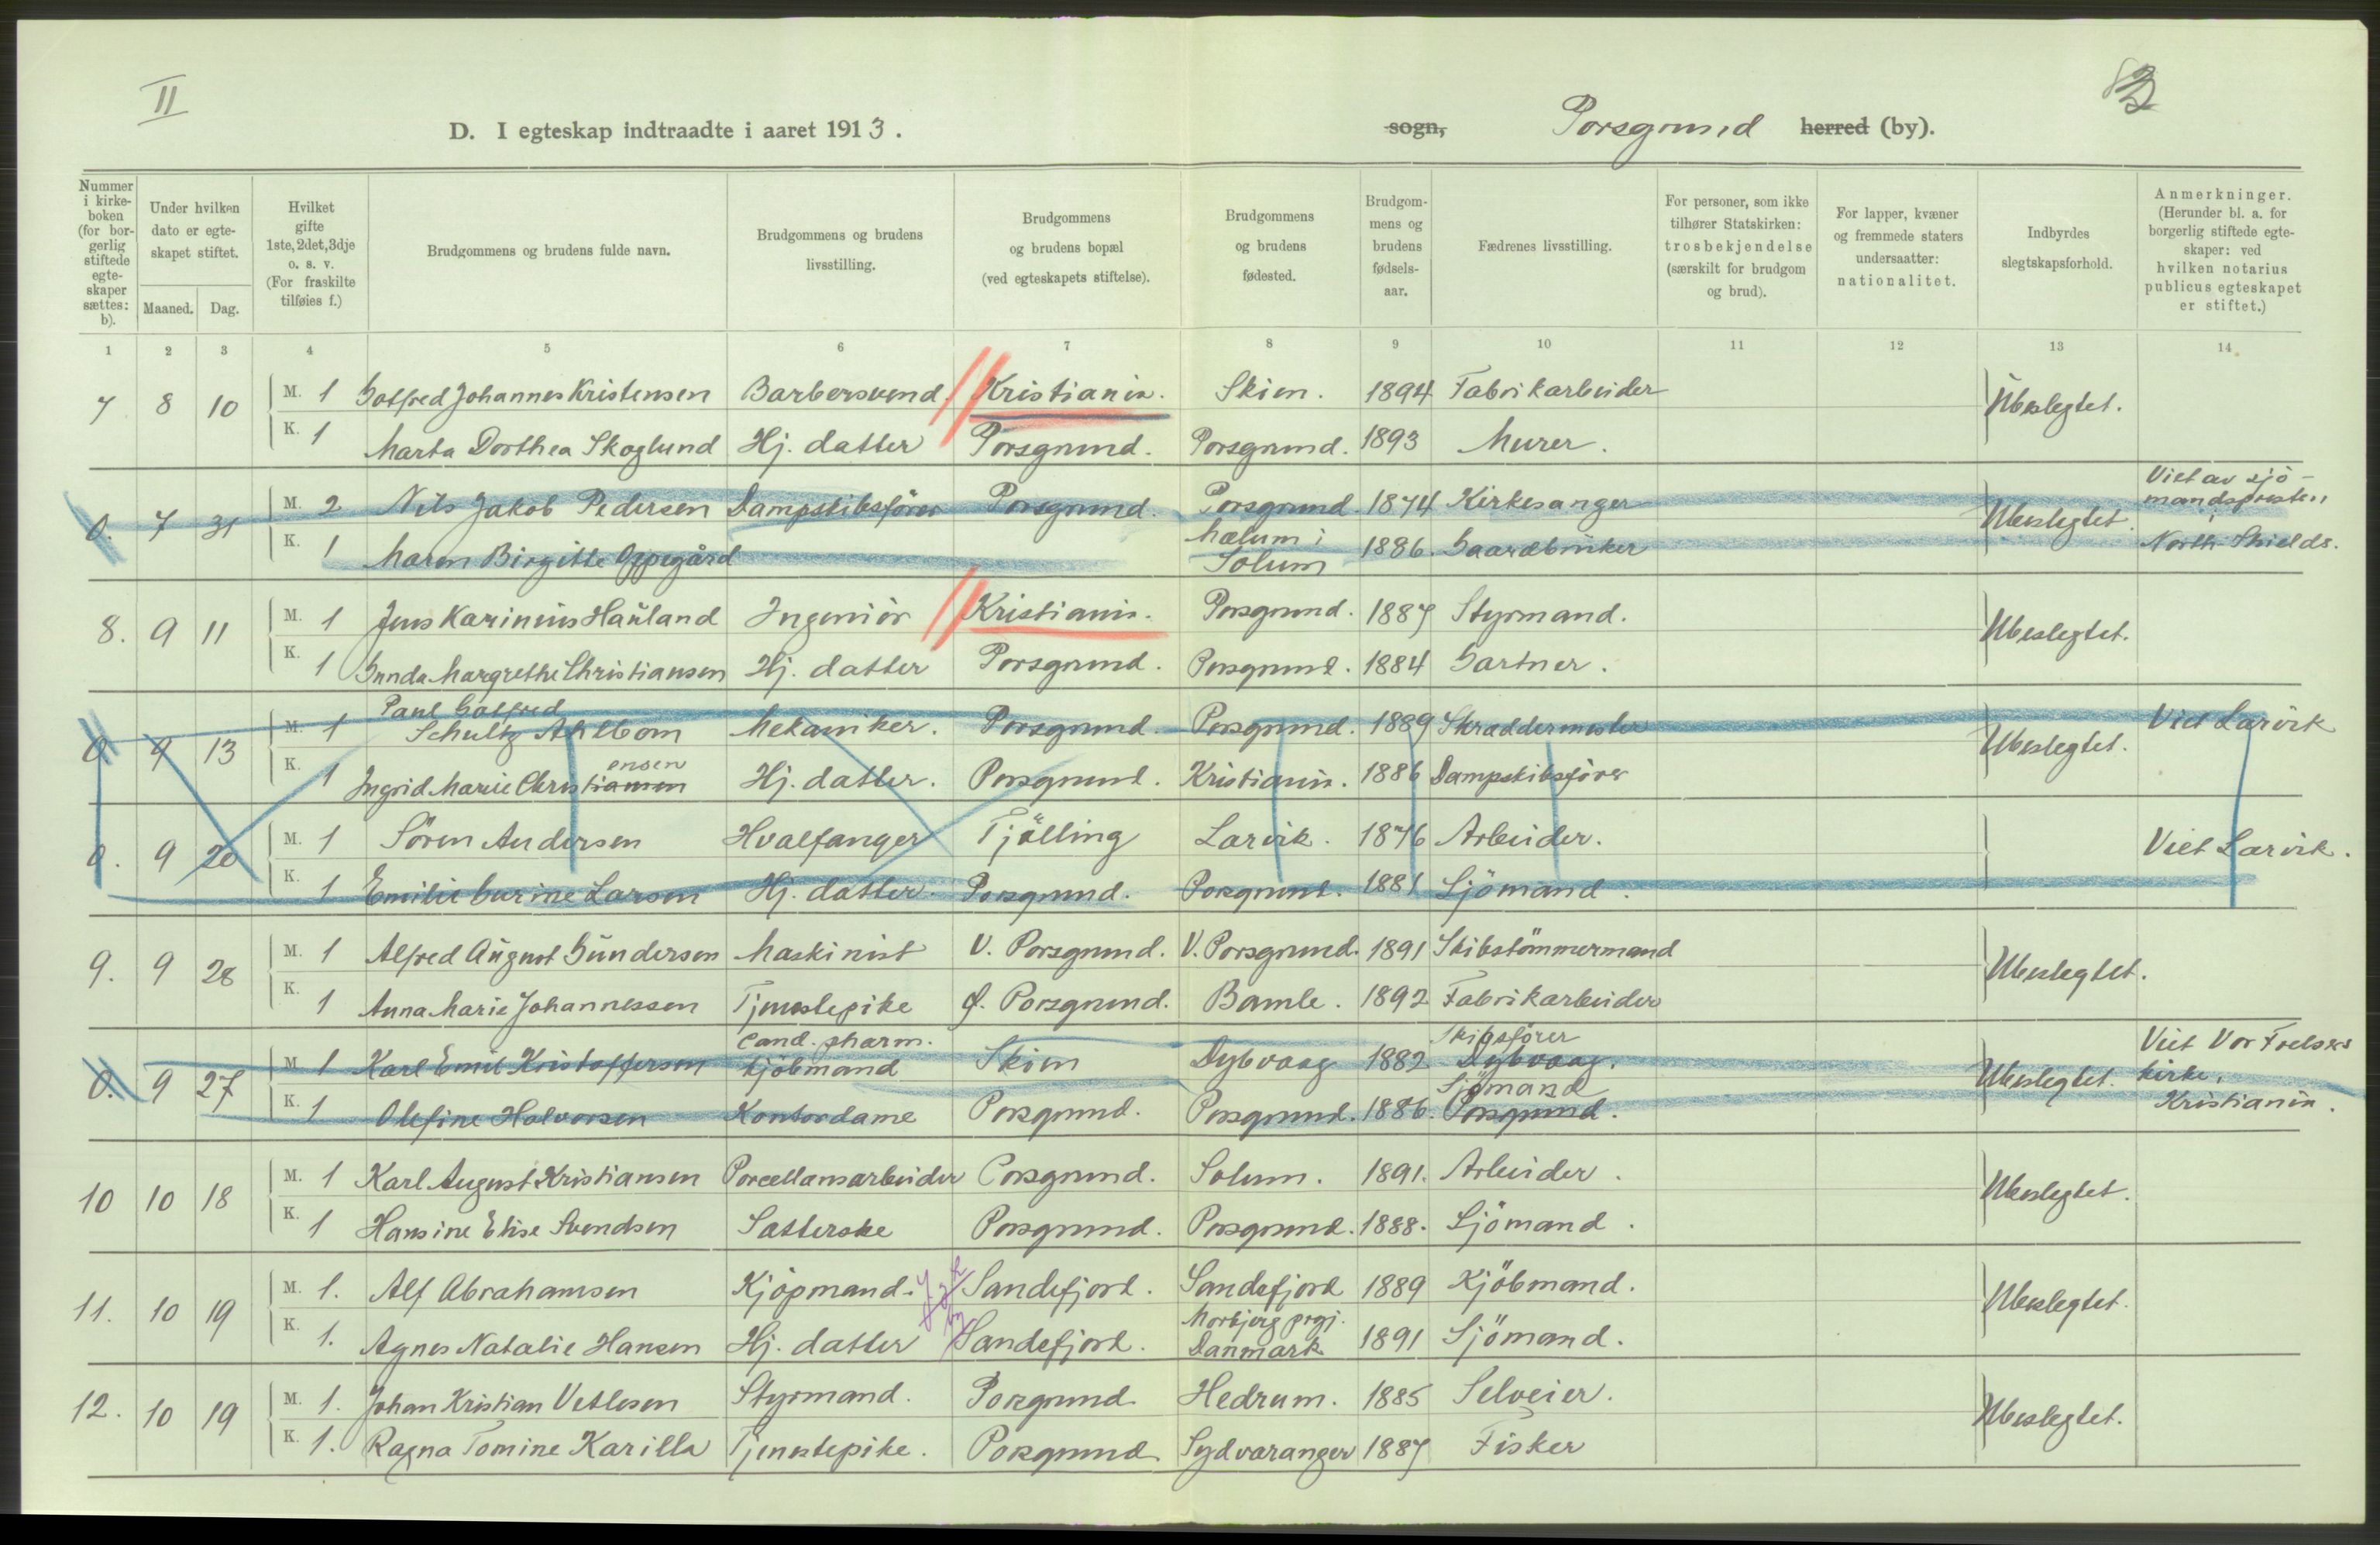 II
D. I egteskap indtraadte i aaret 1913.
sogn, Porsgrund herred (by).
Nummer i kirkeboken (for borgerlig stiftede egteskaper sættes: b).
Under hvilken dato er egteskapet stiftet.
Maaned. Dag.
Hvilket gifte 1ste, 2det, 3dje o. s. v. (For fraskilte tilføies f.)
Brudgommens og brudens fulde navn.
Brudgommens og brudens livsstilling.
Brudgommens og brudens bopæl (ved egteskapets stiftelse).
Brudgommens og brudens fødested.
Brudgommens og brudens fødselsaar.
Fædrenes livsstilling.
For personer, som ikke tilhører Statskirken: trosbekjendelse (særskilt for brudgom og brud).
For lapper, kvæner og fremmede staters undersaatter: nationalitet.
Indbyrdes slegtskapsforhold.
Anmerkninger. (Herunder bl. a. for borgerlig stiftede egteskaper: ved hvilken notarius publicus egteskapet er stiftet.)
1 2 3 4 5 6 7 8 9 10 11 12 13 14
7 8 10 M. 1 Gotfred Johannes Kristensen Barbersvend. Kristiania. Skien. 1894 Fabrikarbeider Ubeslegtet.
K. 1 Marta Dorthea Skoglund Hj. datter Porsgrund. Porsgrund. 1893 Murer.
0. 7 31 M. 2 Nils Jakob Pedersen Dampskibsförer Porsgrund. Porsgrund. 1874 Kirkesanger Ubeslegtet. Viet av sjömandspresten i North Shields.
K. 1 Maren Birgitte Oppegård Mælum i Solum 1886. Gaardbruker
8. 9 11 M. 1 Jens Karinius Hauland Ingeniör Kristiania. Porsgrund. 1887 Styrmand. Ubeslegtet.
K. 1 Gunda Margrethe Christiansen Hj. datter Porsgrund. Porsgrund. 1884 Gartner.
0 9 13 M. 1 Paul Gotfred Schultz Ahlbom Mekaniker. Porsgrund. Porsgrund. 1889 Skræddermester Ubeslegtet. Viet Larvik
K. 1 Ingrid Marie Christiansen ensen Hj. datter. Porsgrund. Kristiania. 1886 Dampskibsförer
0. 9 20 M. 1 Sören Andersen Hvalfanger Tjölling Larvik. 1876 Arbeider. Viet Larvik.
K. 1 Emilie Gurine Larsen Hj. datter. Porsgrund. Porsgrund. 1881 Sjömand.
9. 9 28 M. 1 Alfred August Gundersen Maskinist V. Porsgrund. V. Porsgrund. 1891 Skibstömmermand Ubeslegtet.
K. 1 Anna Marie Johannessen Tjenestepike Ø. Porsgrund. Bamle. 1892 Fabrikarbeider
0. 9 27 M 1 Karl Emil Kristoffersen Cand. pharm. kjöbmand Skien Dybvaag 1882 Skibsförer Dybvaag. Ubeslegtet. Viet Vor Frelsers kirke, Kristiania.
K. 1 Olefine Halvorsen Kontordame Porsgrund. Porsgrund. 1886. Sjömand Porsgrund.
10 10 18 M. 1 Karl August Kristiansen Porcellansarbeider Porsgrund. Solum. 1891. Arbeider. Ubeslegtet.
K. 1 Hansine Elise Svendsen Satterske Porsgrund. Porsgrund. 1888. Sjömand.
11. 10 19 M. 1. Alf Abrahamsen Kjöpmand. Sandefjord. Sandefjord 1889 Kjöbmand. Ubeslegtet.
K. 1. Agnes Natalie Hansen Hj. datter Sandefjord. Danmark 1891 Sjömand.
12. 10 19 M. 1. Johan Kristian Vetlesen Styrmand. Porsgrund. Hedrum. 1885 Selveier. Ubeslegtet.
K. 1. Ragna Tomine Karilla Tjenestepike. Porsgrund Sydvaranger 1887 Fisker